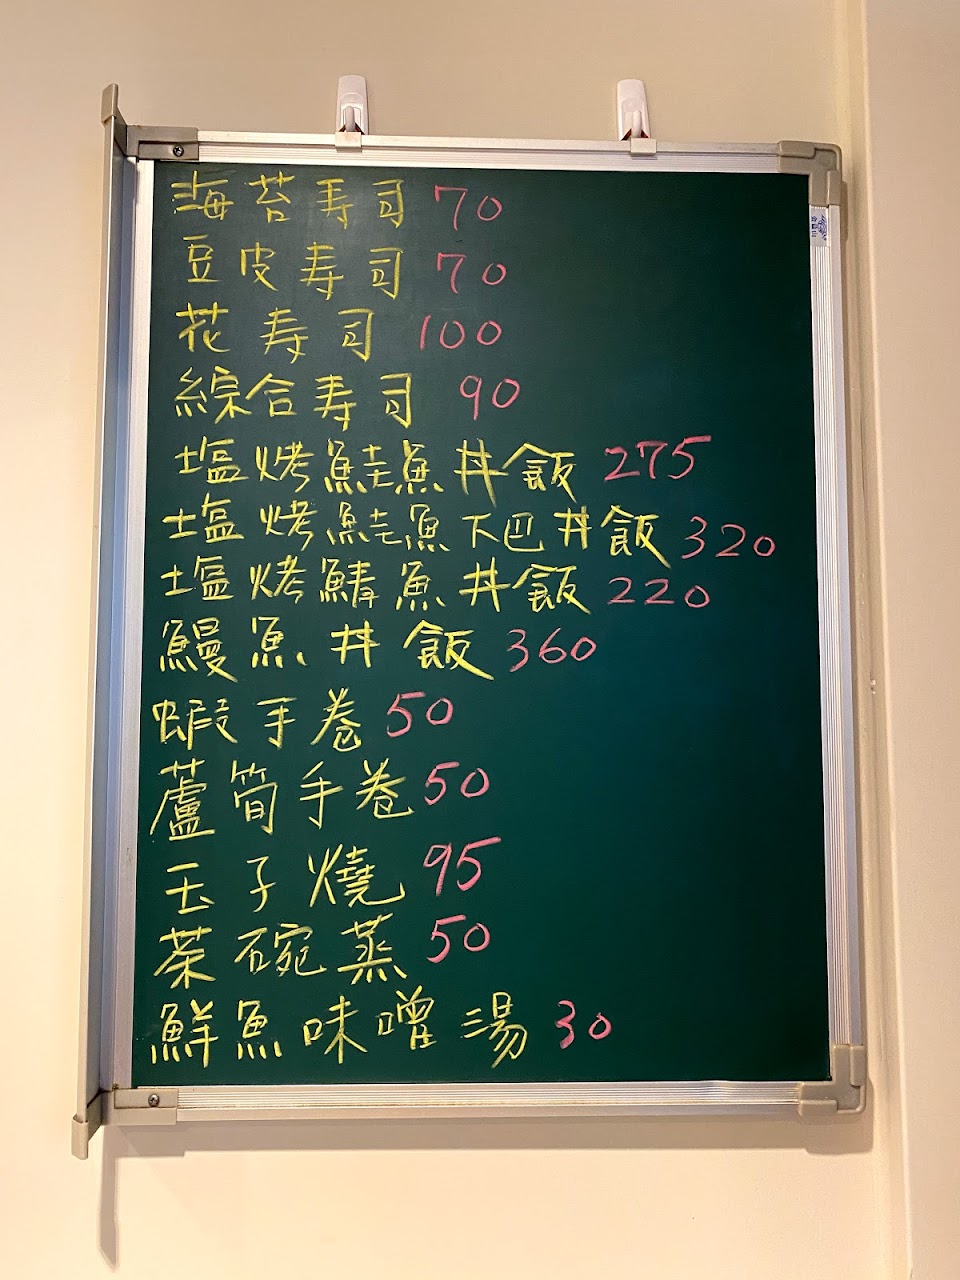 海苔寿司 70
豆皮寿司 70
花寿司 100
綜合寿司 90
塩烤鮭魚丼飯 275
塩烤鮭魚下巴丼飯 320
塩烤鯖魚丼飯 220
鰻魚丼飯 360
蝦手卷 50
蘆筍手卷 50
玉子燒 95
茶碗蒸 50
鮮魚味噌湯 30